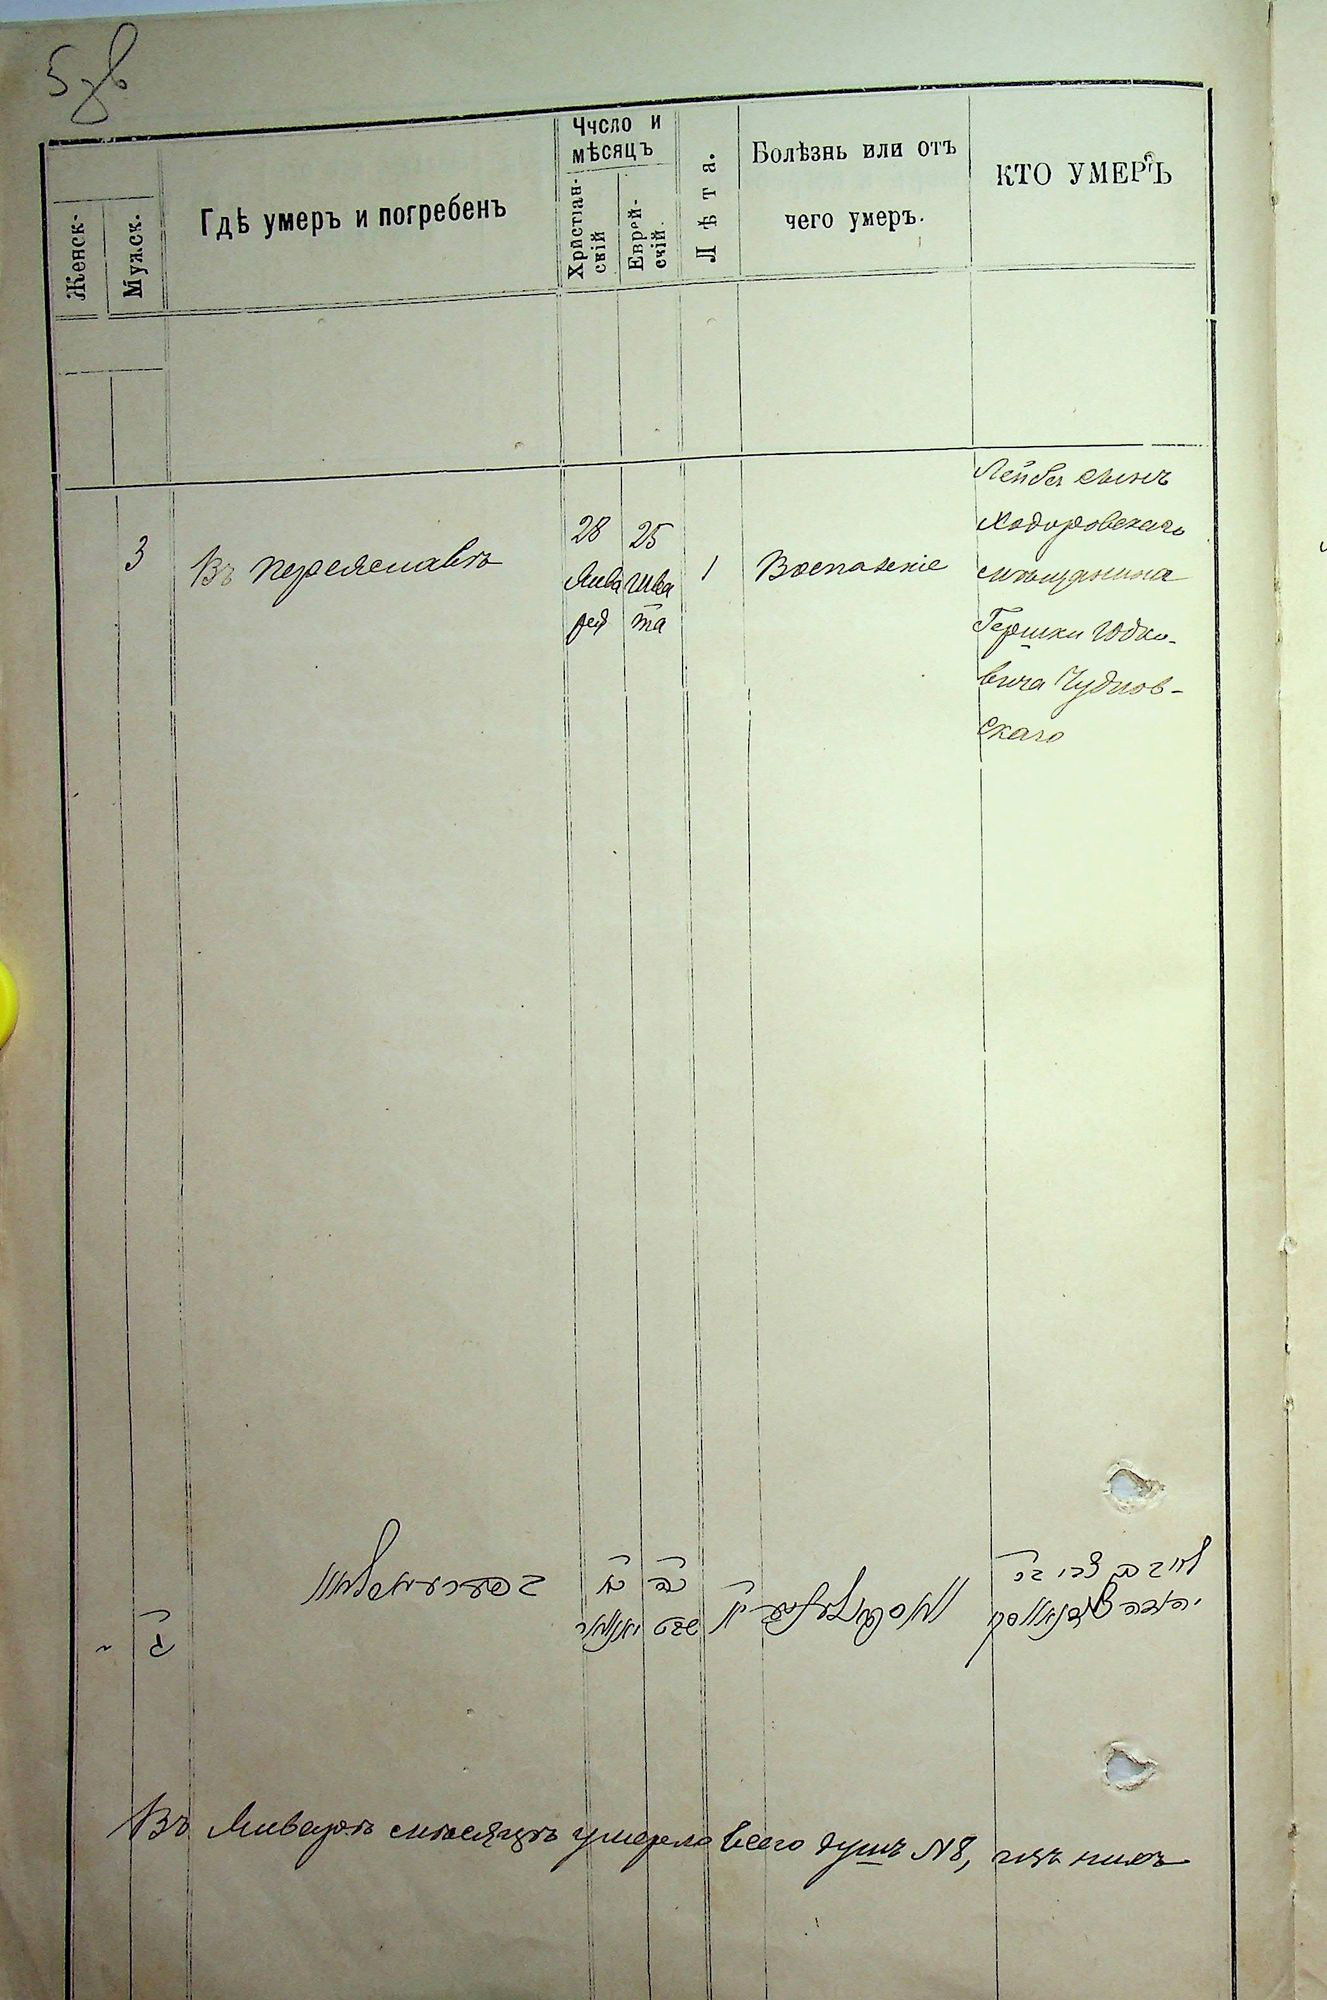 5зв
Число и
мѣсяцъ
Женск-
Мужск.
Гдѣ умеръ и погребенъ
Христіан-
скій
Еврей-
скій.
Лѣта.
Болѣзнь или отъ
чего умеръ.
КТО УМЕРЪ
3
Въ Переяславѣ
28
Янва
ря
25
Шва
та
1
Воспаленіе
Лейба сынъ
Ходоровскаго
мѣщанина
Гершки Юдко-
вича Чуднов-
скаго
ג
שבט
יאנוואר
Въ Январѣ мѣсяцѣ умерло всего душъ №8, изъ нихъ